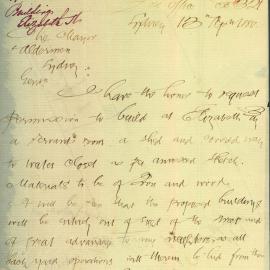 Building
Elizabeth St.
Sydney 18th April 1880
The Mayor
& Aldermen
Sydney
Gent.
I have the honor to request
permission to build at Elizabeth
a verandah from a shed and covered way
to water closet as per annexed sketch.
Materials to be of Iron and wood.
It will be seen that the proposed buildings
will be entirely out of sight of the
of great advantage to my neighbors as all
back yard operations will therein be hid from them